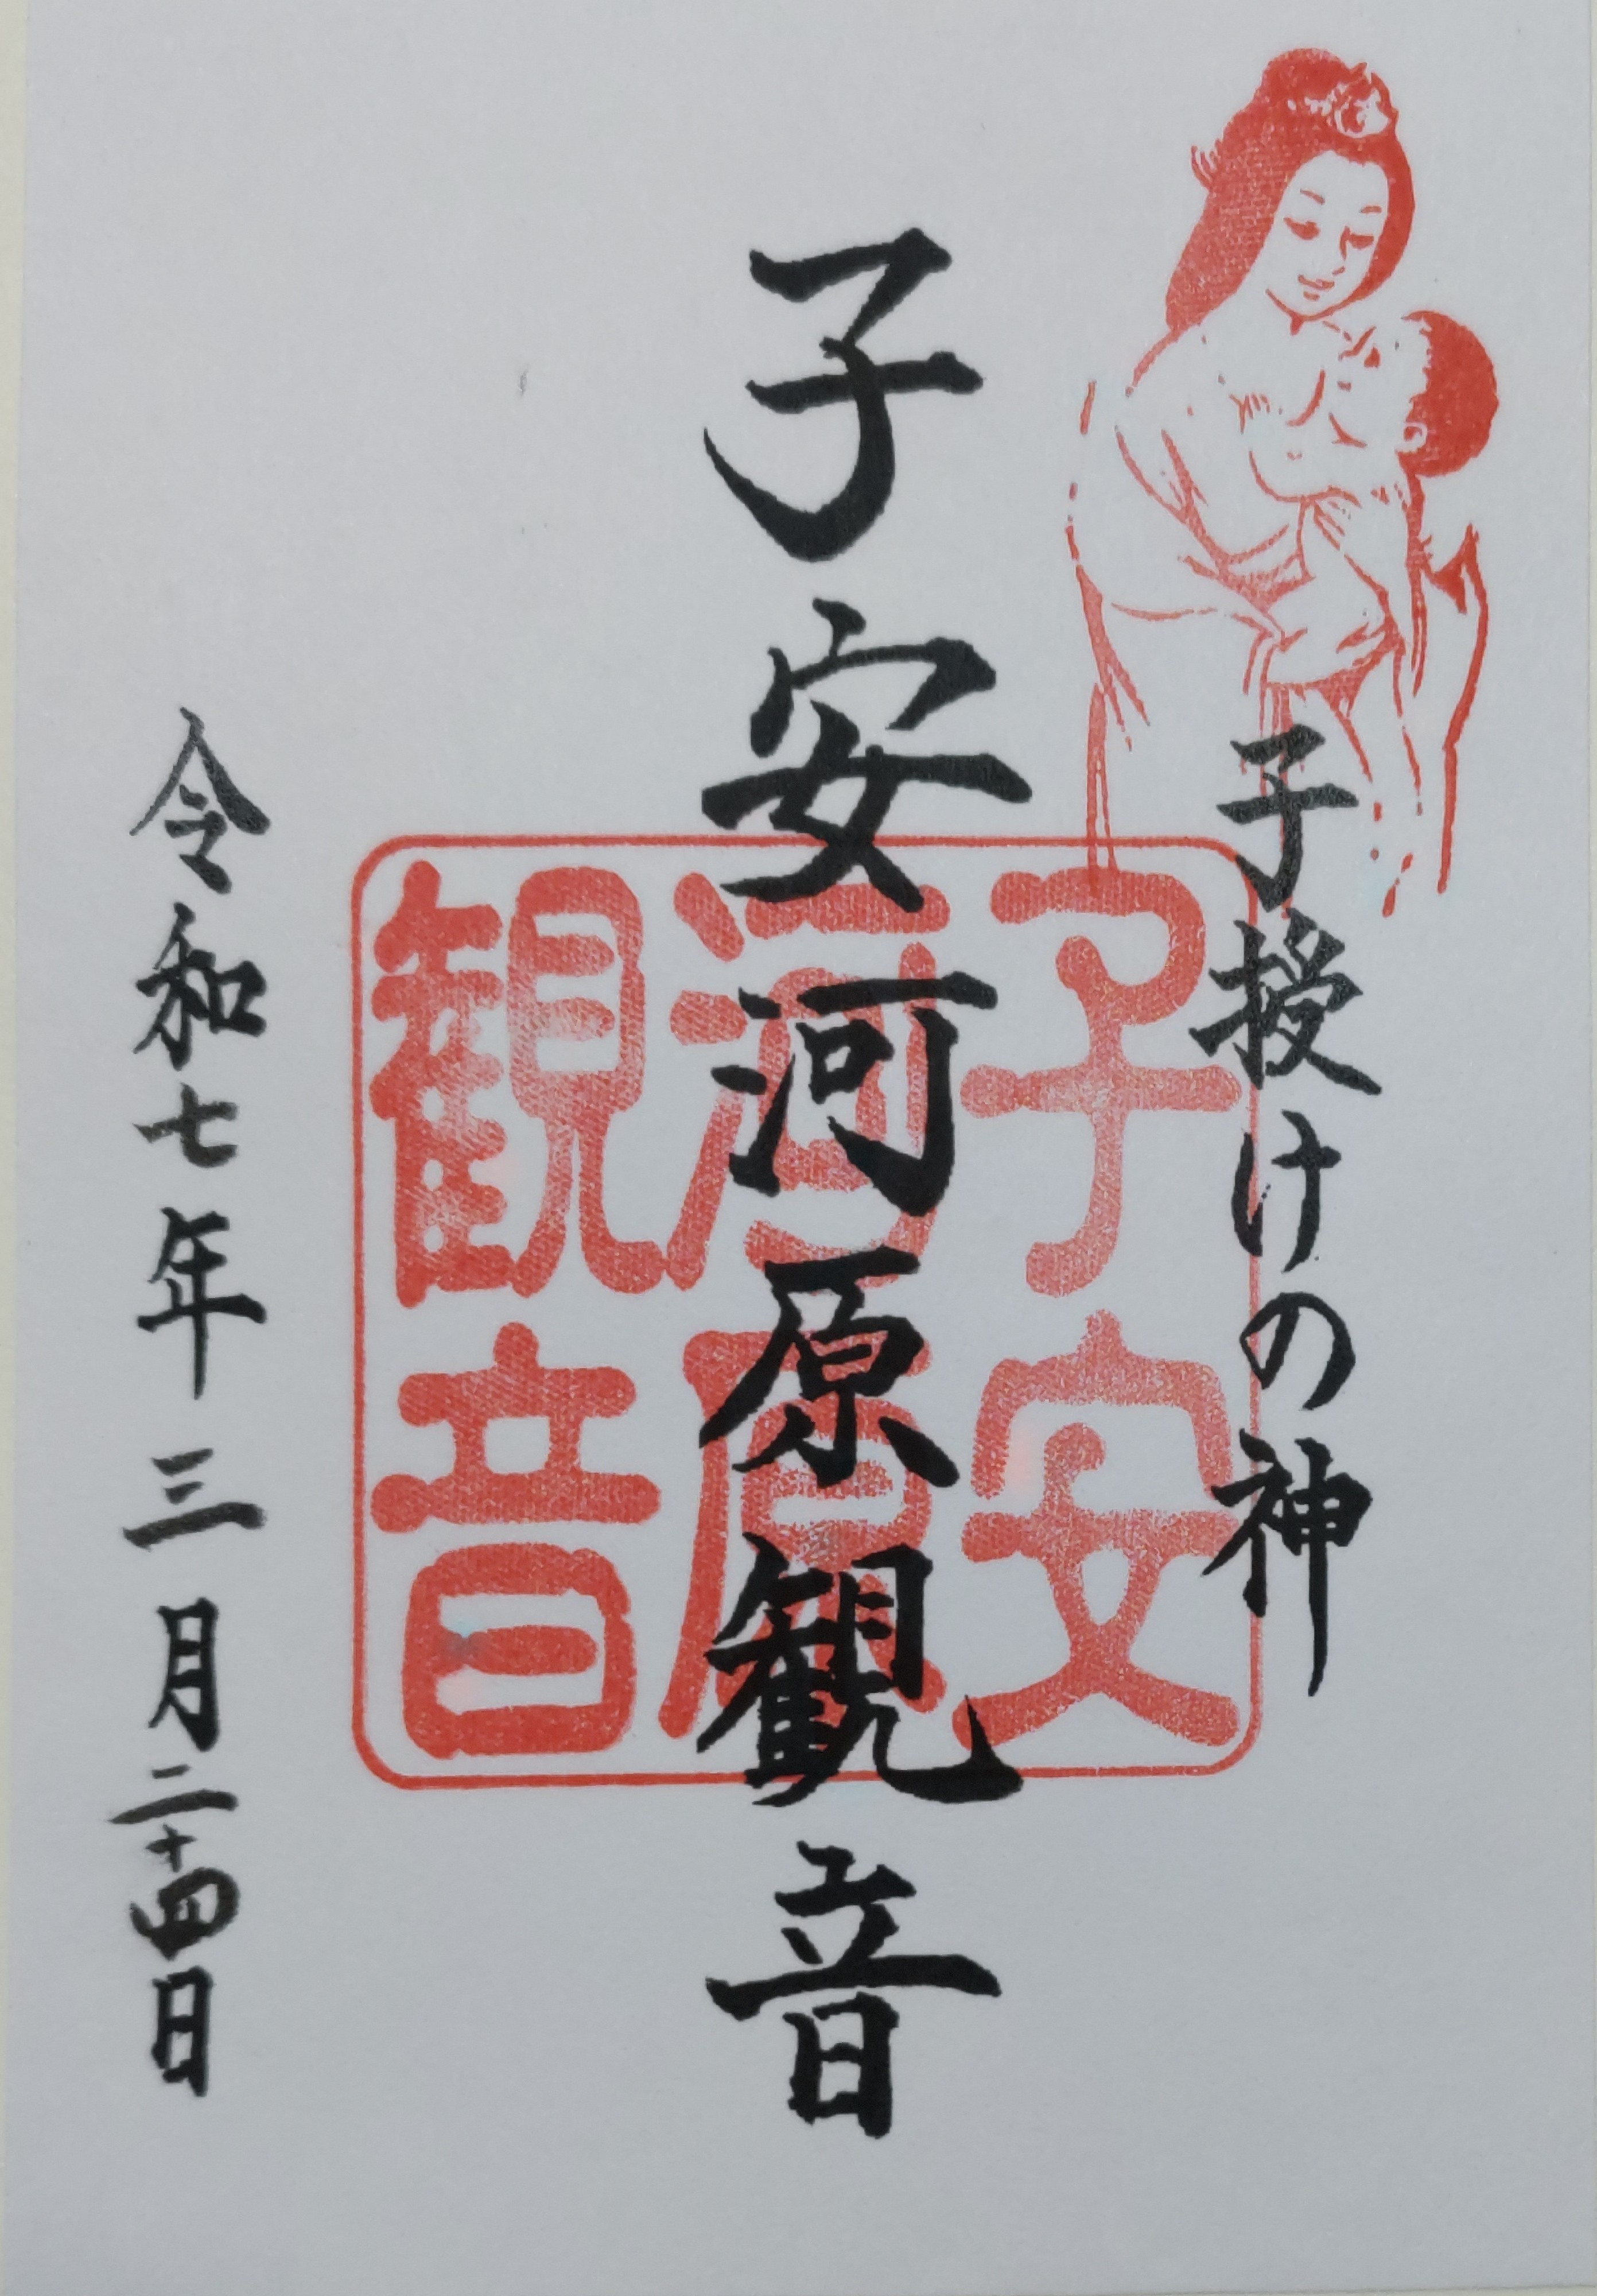 子授けの神
子安河原観音
子安
河原
観音
令和七年三月二十四日